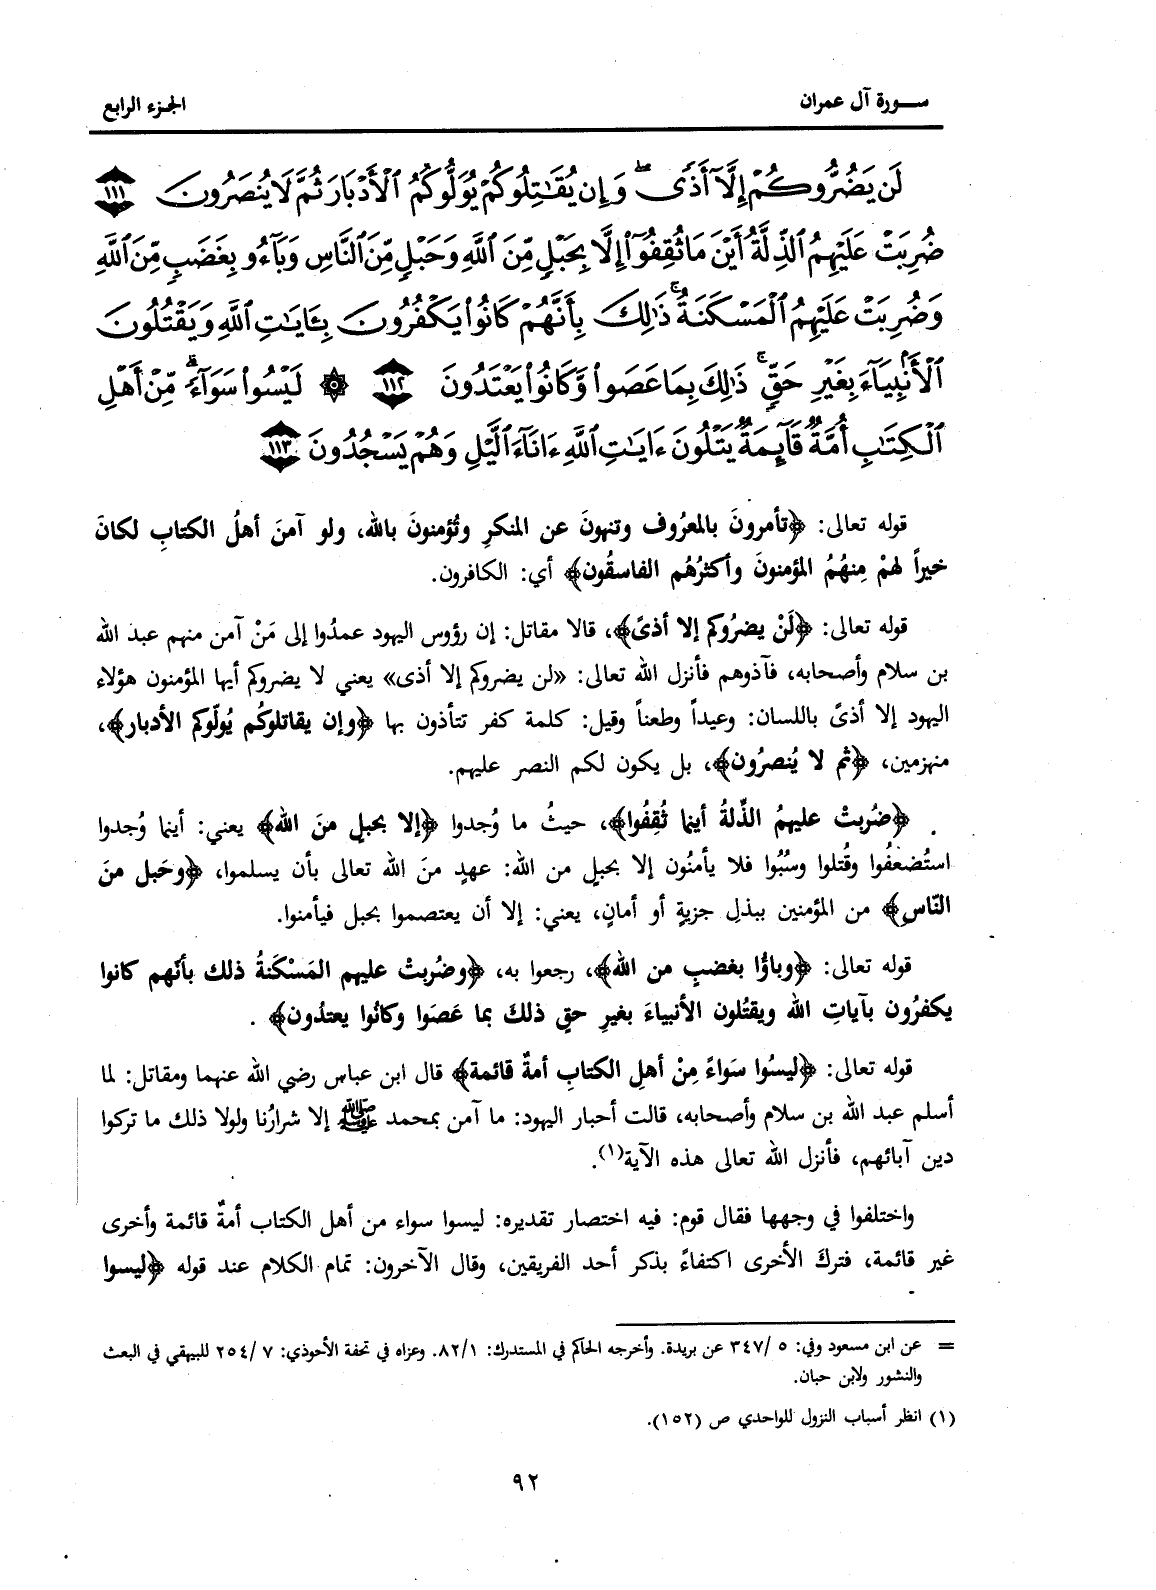 سورة آل عمران
الجزء الرابع
لَن يَضُرُّوكُمْ إِلَّآ أَذًى ۖ وَإِن يُقَٰتِلُوكُمْ يُوَلُّوكُمُ ٱلْأَدْبَارَ ثُمَّ لَا يُنصَرُونَ ١١١
ضُرِبَتْ عَلَيْهِمُ ٱلذِّلَّةُ أَيْنَ مَا ثُقِفُوٓا۟ إِلَّا بِحَبْلٍ مِّنَ ٱللَّهِ وَحَبْلٍ مِّنَ ٱلنَّاسِ وَبَآءُو بِغَضَبٍ مِّنَ ٱللَّهِ
وَضُرِبَتْ عَلَيْهِمُ ٱلْمَسْكَنَةُ ۚ ذَٰلِكَ بِأَنَّهُمْ كَانُوا۟ يَكْفُرُونَ بِـَٔايَٰتِ ٱللَّهِ وَيَقْتُلُونَ
ٱلْأَنۢبِيَآءَ بِغَيْرِ حَقٍّ ۚ ذَٰلِكَ بِمَا عَصَوا۟ وَّكَانُوا۟ يَعْتَدُونَ ١١٢ ۞ لَيْسُوا۟ سَوَآءً ۗ مِّنْ أَهْلِ
ٱلْكِتَٰبِ أُمَّةٌ قَآئِمَةٌ يَتْلُونَ ءَايَٰتِ ٱللَّهِ ءَانَآءَ ٱلَّيْلِ وَهُمْ يَسْجُدُونَ ١١٣
قوله تعالى: ﴿تأمرونَ بالمعرُوف وتنهونَ عن المنكرِ وتُؤمنونَ بالله، ولو آمنَ أهلُ الكتابِ لكانَ
خيراً لهمْ مِنهُمُ المؤمنونَ وأكثرُهُم الفاسقُون﴾ أي: الكافرون.
قوله تعالى: ﴿لَنْ يضرُوكم إلا أذىً﴾، قالا مقاتل: إن رؤوس اليهود عمدُوا إلى مَنْ آمن منهم عبد الله
بن سلام وأصحابه، فآذوهم فأنزل الله تعالى: «لن يضروكم إلا أذى» يعني لا يضروكم أيها المؤمنون هؤلاء
اليهود إلا أذىً باللسان: وعيداً وطعناً وقيل: كلمة كفر تتأذون بها ﴿وإن يقاتلوكُم يُولّوكم الأدبار﴾،
منهزمين، ﴿ثم لا يُنصرُون﴾، بل يكون لكم النصر عليهم.
﴿ضُربتْ عليهمُ الذِّلةُ أينما ثُقِفُوا﴾، حيثُ ما وُجدوا ﴿إلا بحبلٍ منَ الله﴾ يعني: أينما وُجدوا
استُضعفُوا وقُتلوا وسُبُوا فلا يأمنُون إلا بحبلٍ من الله: عهدٍ منَ الله تعالى بأن يسلموا، ﴿وحَبل منَ
النّاسِ﴾ من المؤمنين ببذلِ جزيةٍ أو أمانٍ، يعني: إلا أن يعتصموا بحبل فيأمنوا.
قوله تعالى: ﴿وباؤا بغضبٍ من الله﴾، رجعوا به، ﴿وضُربتْ عليهم المَسْكَنةُ ذلك بأنّهم كانوا
يكفرُون بآياتِ الله ويقتُلون الأنبياءَ بغيرِ حقٍ ذلكَ بما عَصَوا وكانُوا يعتدُون﴾ .
قوله تعالى: ﴿ليسُوا سَواءً مِنْ أهلِ الكتابِ أمةٌ قائمة﴾ قال ابن عباس رضي الله عنهما ومقاتل: لما
أسلم عبد الله بن سلام وأصحابه، قالت أحبار اليهود: ما آمن بمحمد ﷺ إلا شرارُنا ولولا ذلك ما تركوا
دين آبائهم، فأنزل الله تعالى هذه الآية(١).
واختلفوا في وجهها فقال قوم: فيه اختصار تقديره: ليسوا سواء من أهل الكتاب أمةٌ قائمة وأخرى
غير قائمة، فتركَ الأخرى اكتفاءً بذكر أحد الفريقين، وقال الآخرون: تمام الكلام عند قوله ﴿ليسوا
= عن ابن مسعود وفي: ٥ /٣٤٧ عن بريدة. وأخرجه الحاكم في المستدرك: ٨٢/١. وعزاه في تحفة الأحوذي: ٧ /٢٥٤ للبيهقي في البعث
والنشور ولابن حبان.
(١) انظر أسباب النزول للواحدي ص (١٥٢).
٩٢